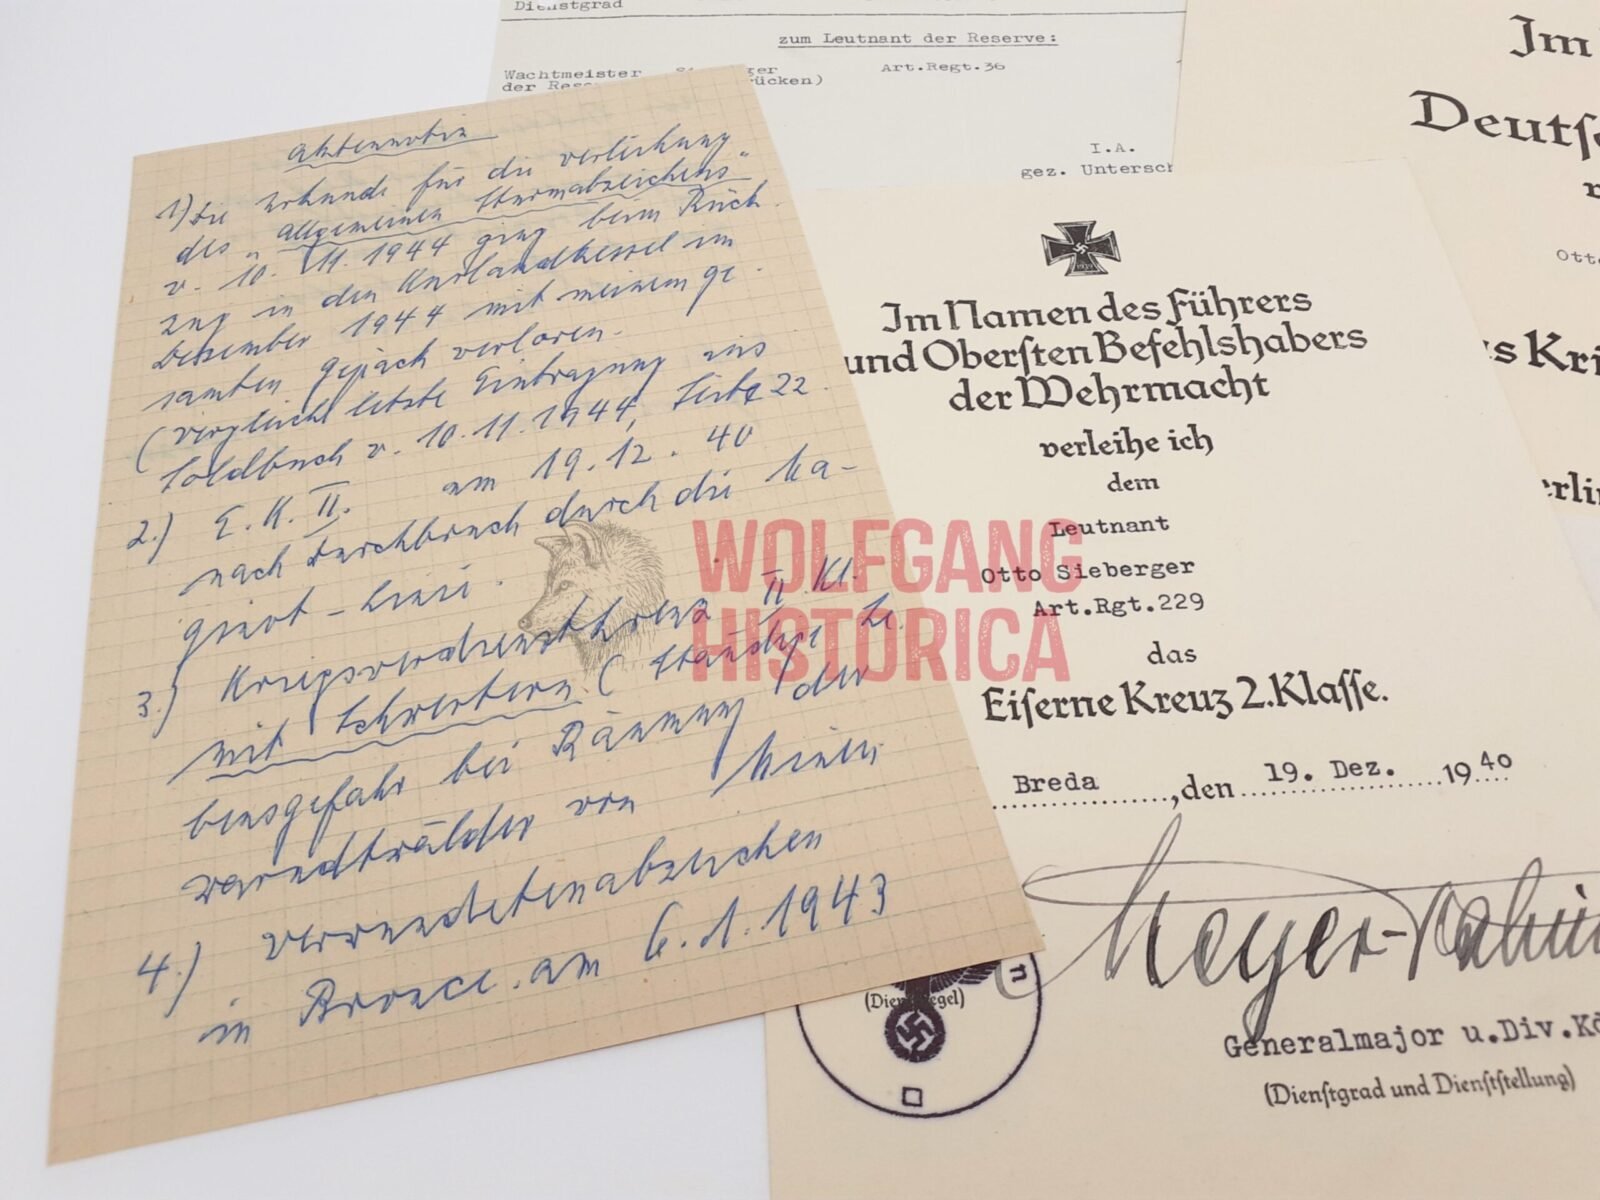 Dienstgrad
zum Leutnant der Reserve:
Wachtmeister
ger
Art.Regt.36
der Res
rücken)
I.A.
gez. Untersch
Aktennotiz
1) Die Urkunde für die Verleihung
des „Allgemeinen Sturmabzeichens"
v. 10. 11. 1944 ging beim Rück-
zug in den Kurlandkessel im
Dezember 1944 mit meinem ge-
samten Gepäck verloren.
(Vergleich letzte Eintragung ins
Soldbuch v. 10.11.1944, Seite 22.
2.) E.K. II. am 19.12.40
nach Durchbruch durch die Ma-
ginot-Linie.
3.) Kriegsverdienstkreuz II. Kl.
mit Schwertern (Ständige Le-
bensgefahr bei Räumung der
Warndtwälder von Minen
4.) Verwundetenabzeichen
in am 6.1.1943
Im Namen des Führers
und Obersten Befehlshabers
der Wehrmacht
verleihe ich
dem
Leutnant
Otto Sieberger
Art.Rgt.229
das
Eiserne Kreuz 2.Klasse.
Breda ,den 19. Dez. 1940
Meyer-
(Dienstsiegel)
Generalmajor u.Div.Kö
(Dienstgrad und Dienststellung)
Im
Deutsc
Otto
s Kri
erlin
WOLFGANG
HISTORICA